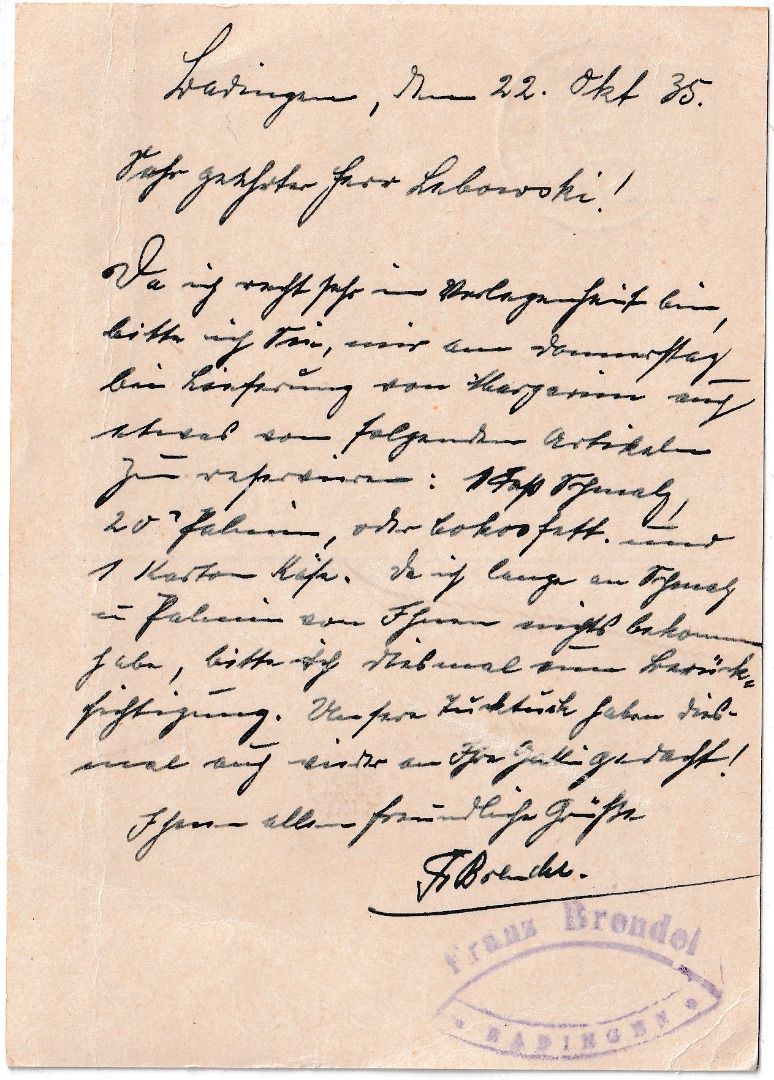 Badingen, den 22. Okt 35.
Sehr geehrter Herr Lebowski!
Da ich recht sehr in Verlegenheit bin,
bitte ich Sie, mir am Donnerstag
bei Lieferung von Margarine auch
etwas von folgenden Artikeln
zu reservieren: 1 Faß Schmalz,
20 Palmin, oder Cokosfett. und
1 Karton Käse. Da ich lange an Schmalz
u Palmin von Ihnen nichts bekommen
habe, bitte ich diesmal um Berück-
sichtigung. Unsere haben dies-
mal auch wieder an Ihre gedacht!
Ihnen allen freundliche Grüße
Fr Brendel.
Franz Brendel
BADINGEN